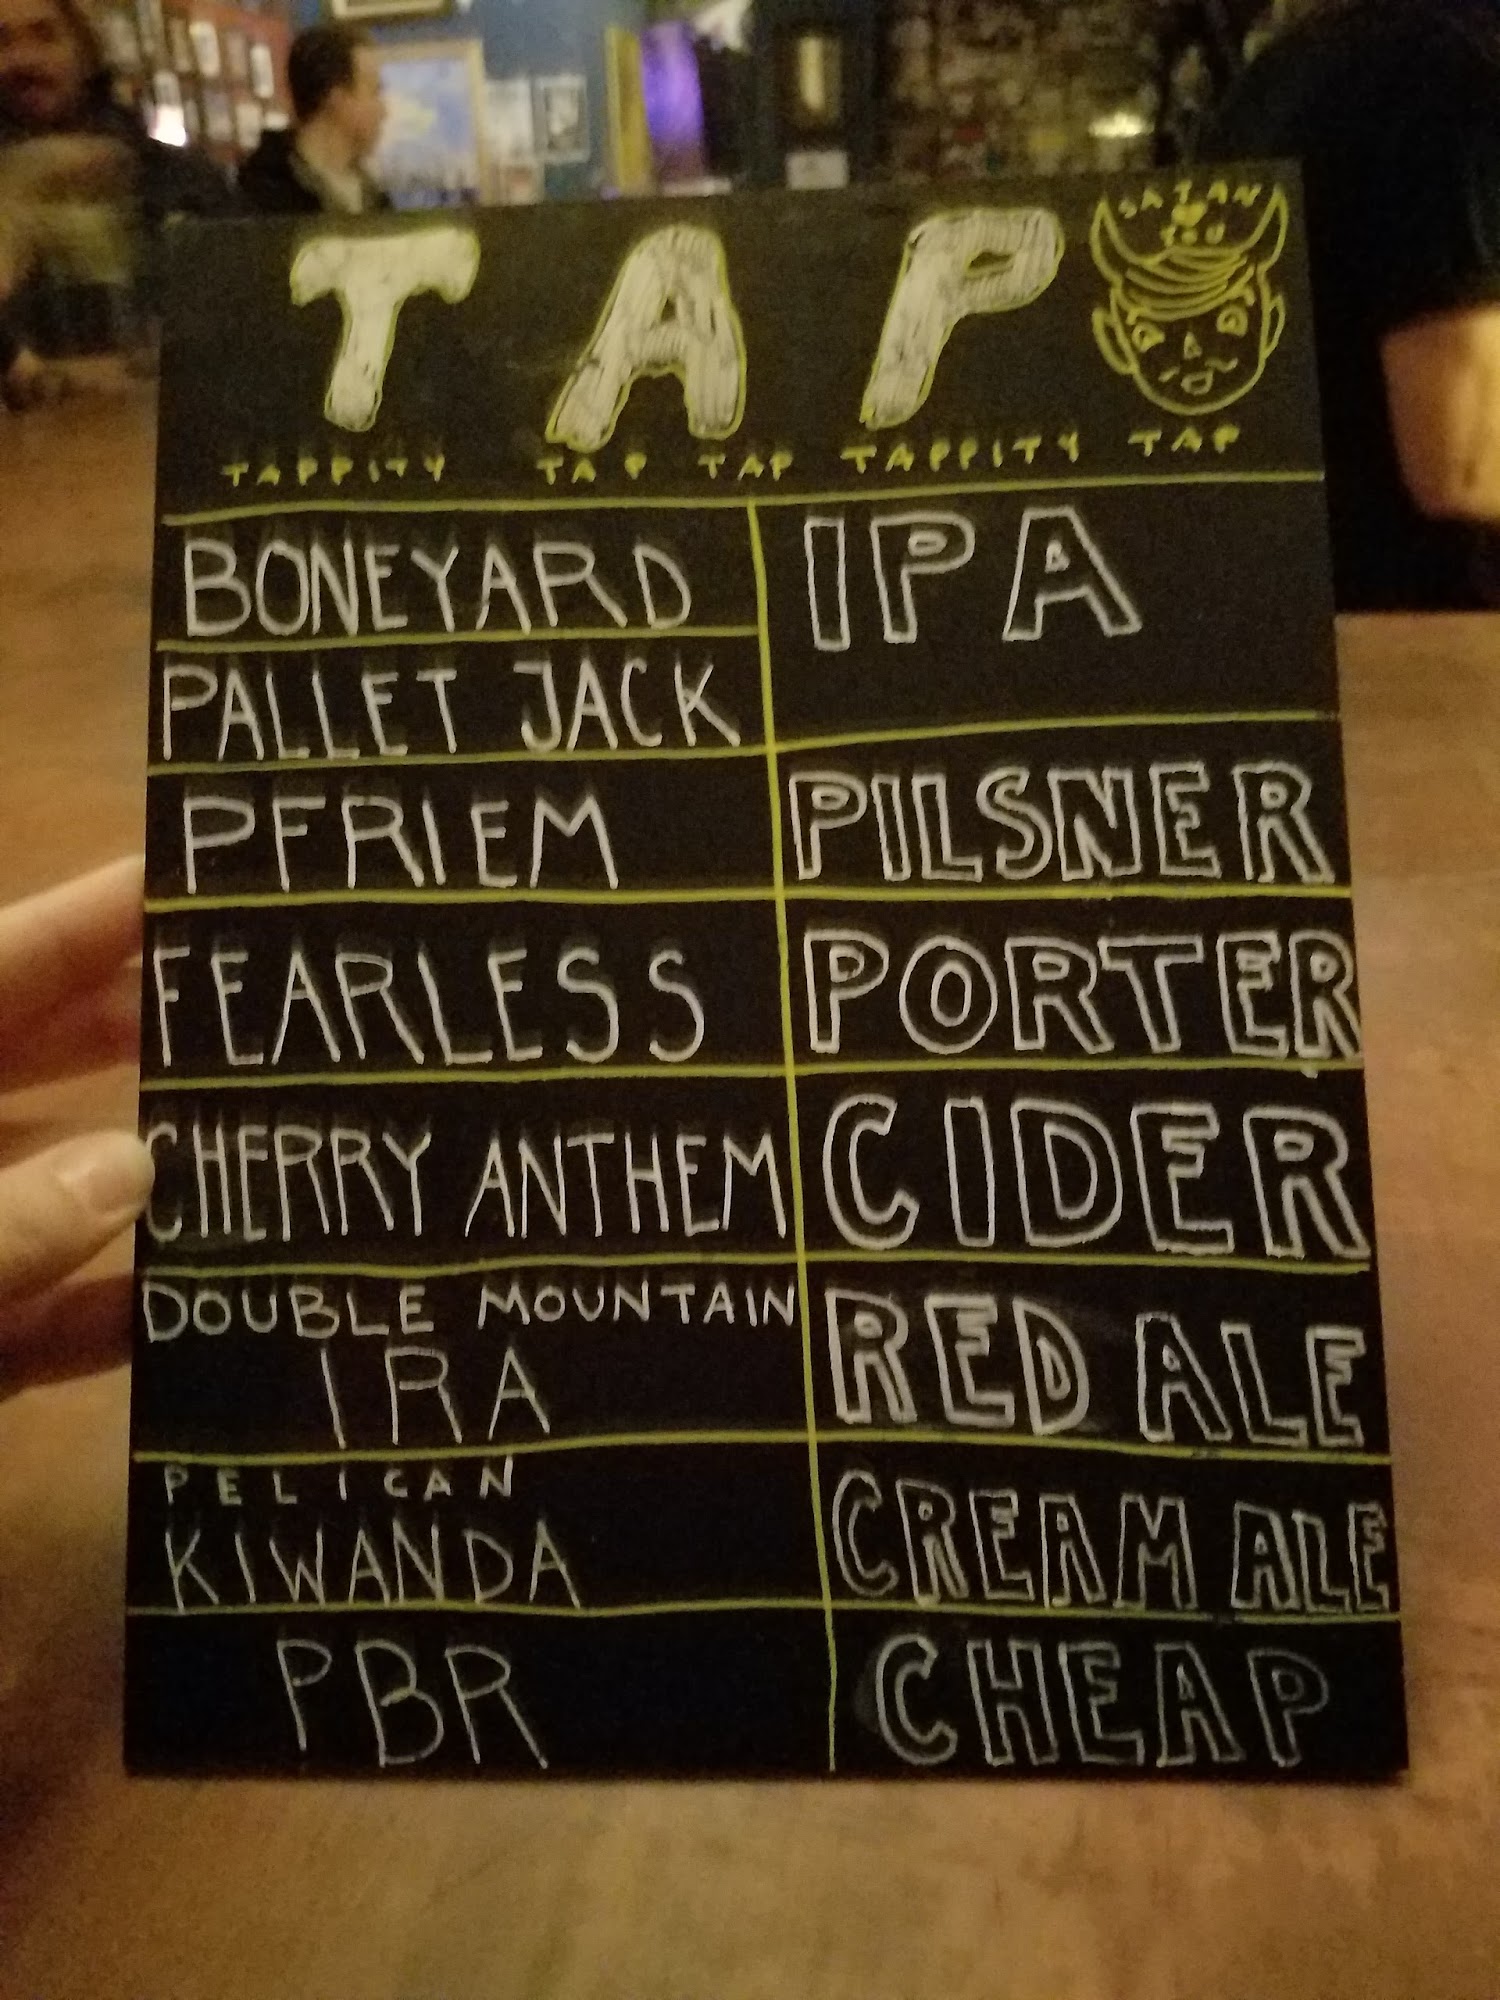 TAP
SATAN
♥
YOU
TAPPITY TAP TAP TAPPITY TAP
BONEYARD IPA
PALLET JACK
PFRIEM PILSNER
FEARLESS PORTER
CHERRY ANTHEM CIDER
DOUBLE MOUNTAIN
IRA RED ALE
PELICAN
KIWANDA CREAM ALE
PBR CHEAP